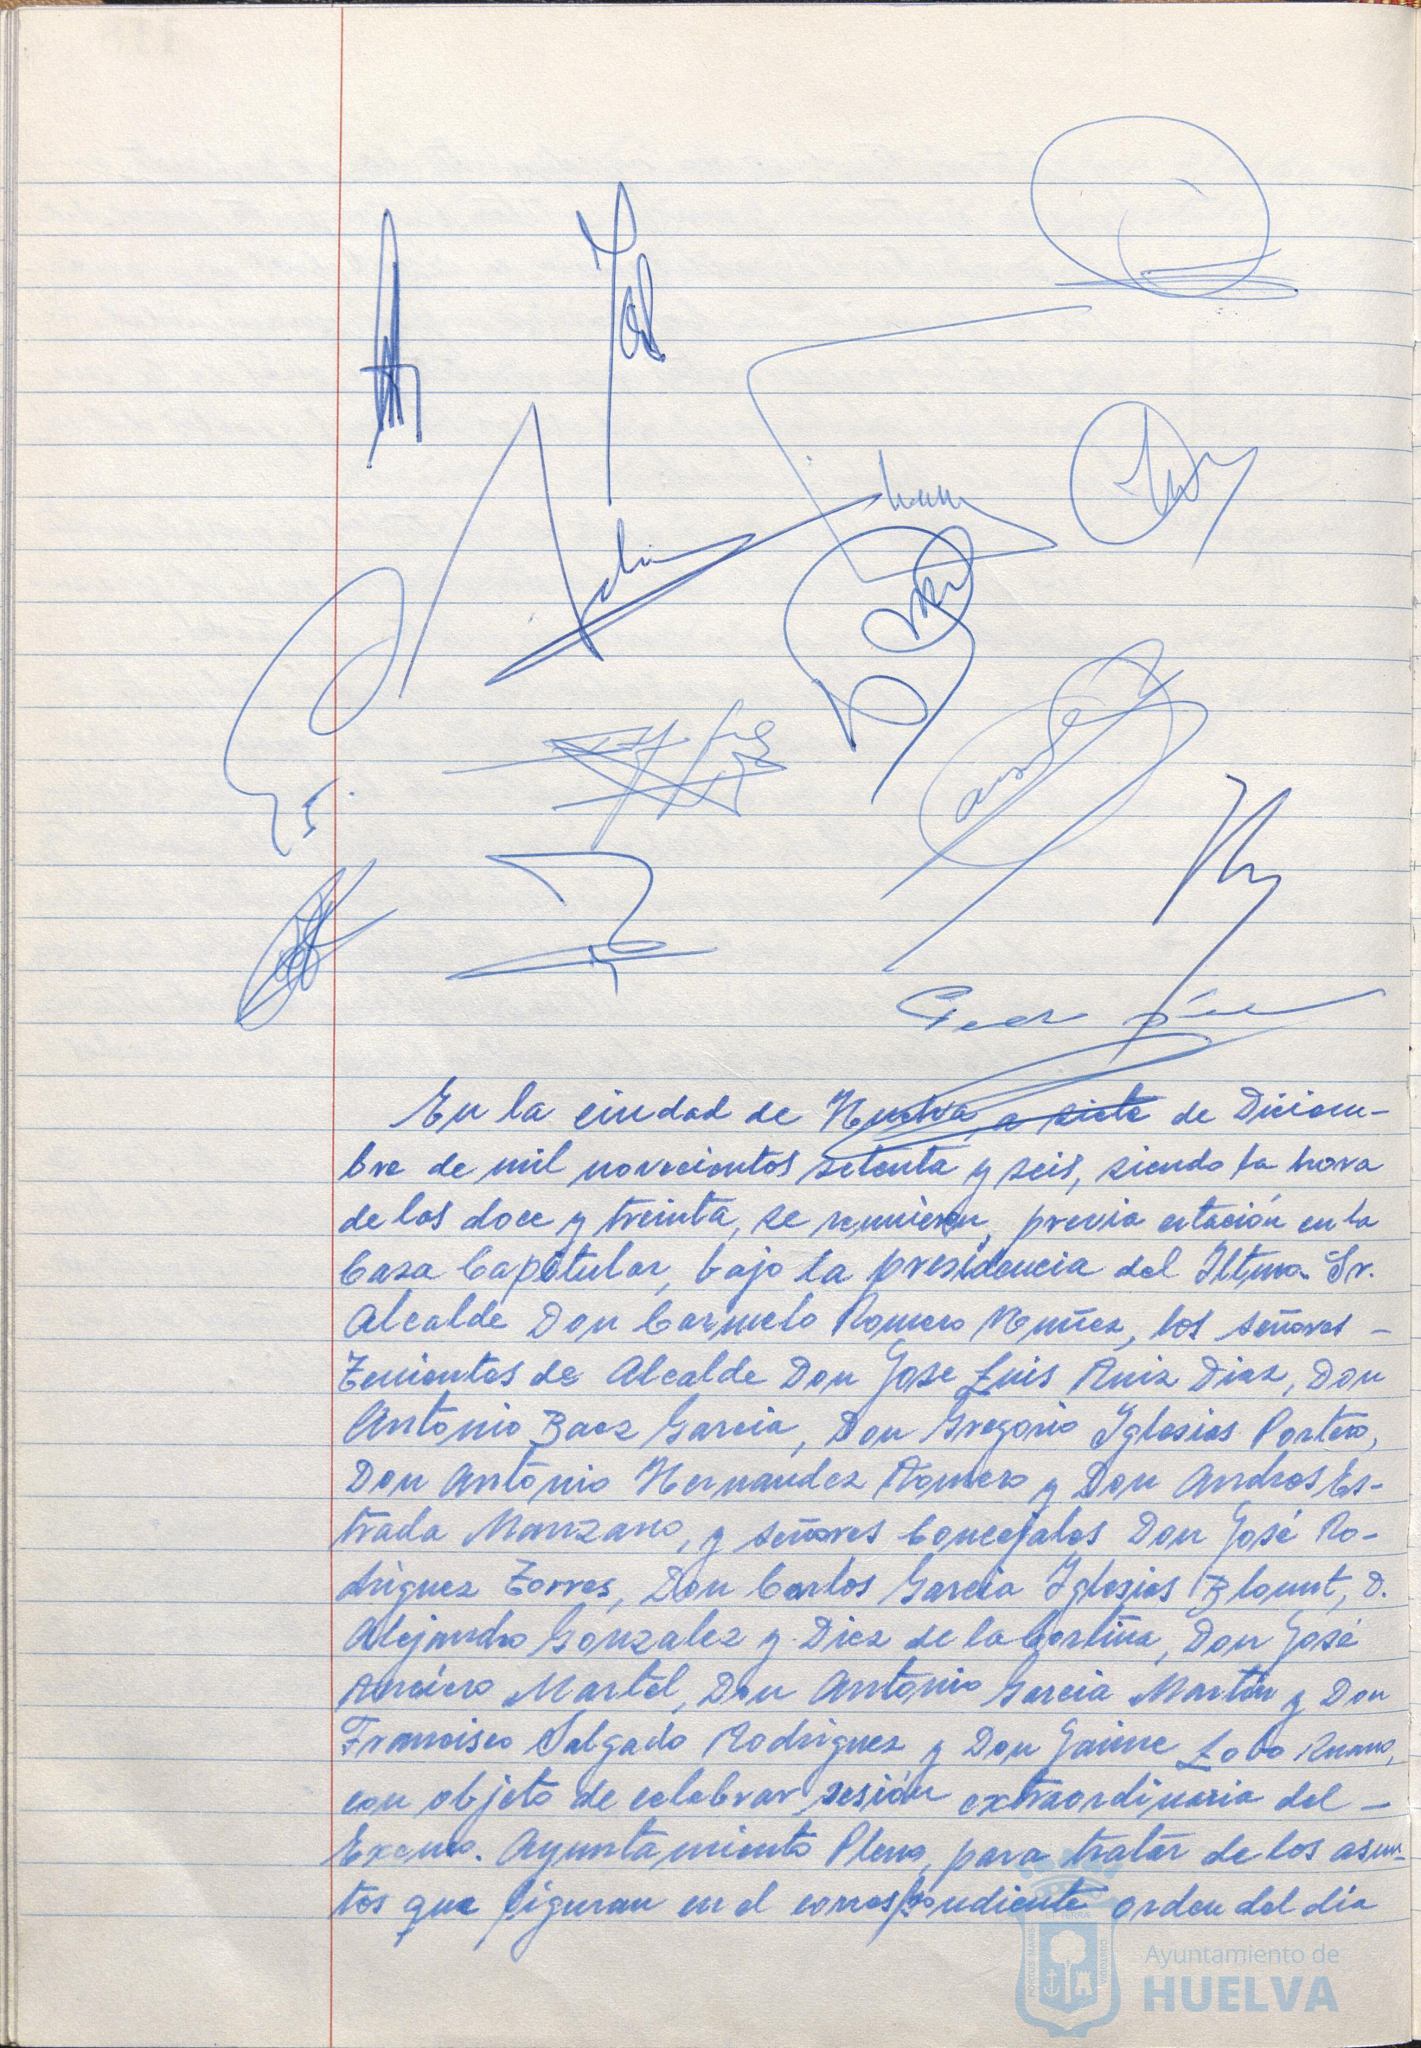 En la ciudad de Huelva, a siete de Diciem-
bre de mil novecientos setenta y seis, siendo la hora
de las doce y treinta, se reunieron, previa citación en la
Casa Capitular, bajo la presidencia del Iltmo. Sr.
Alcalde Don Carmelo Romero Nuñez, los señores -
Tenientes de Alcalde Don Jose Luis Ruiz Diaz, Don
Antonio Baez Garcia, Don Gregorio Iglesias Portero,
Don Antonio Hernandez Romero y Don Andres Es-
trada Manzano, y señores Concejales Don José Ro-
driguez Torres, Don Carlos Garcia Iglesias Blount, D.
Alejandro Gonzalez y Diez de la Cortina, Don José
Martel, Don Antonio Garcia Martín y Don
Francisco Salgado Rodriguez y Don Jaime Lobo Ruano,
con objeto de celebrar sesión extraordinaria del -
Excmo. Ayuntamiento Pleno, para tratar de los asun-
tos que figuran en el correspondiente orden del día
PORTUS MARIS ET TERRAE CUSTODIA
Ayuntamiento de
HUELVA